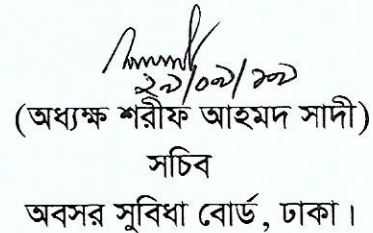 (অধ্যক্ষ শরীফ আহমদ সাদী)
সচিব
অবসর সুবিধা বোর্ড, ঢাকা।